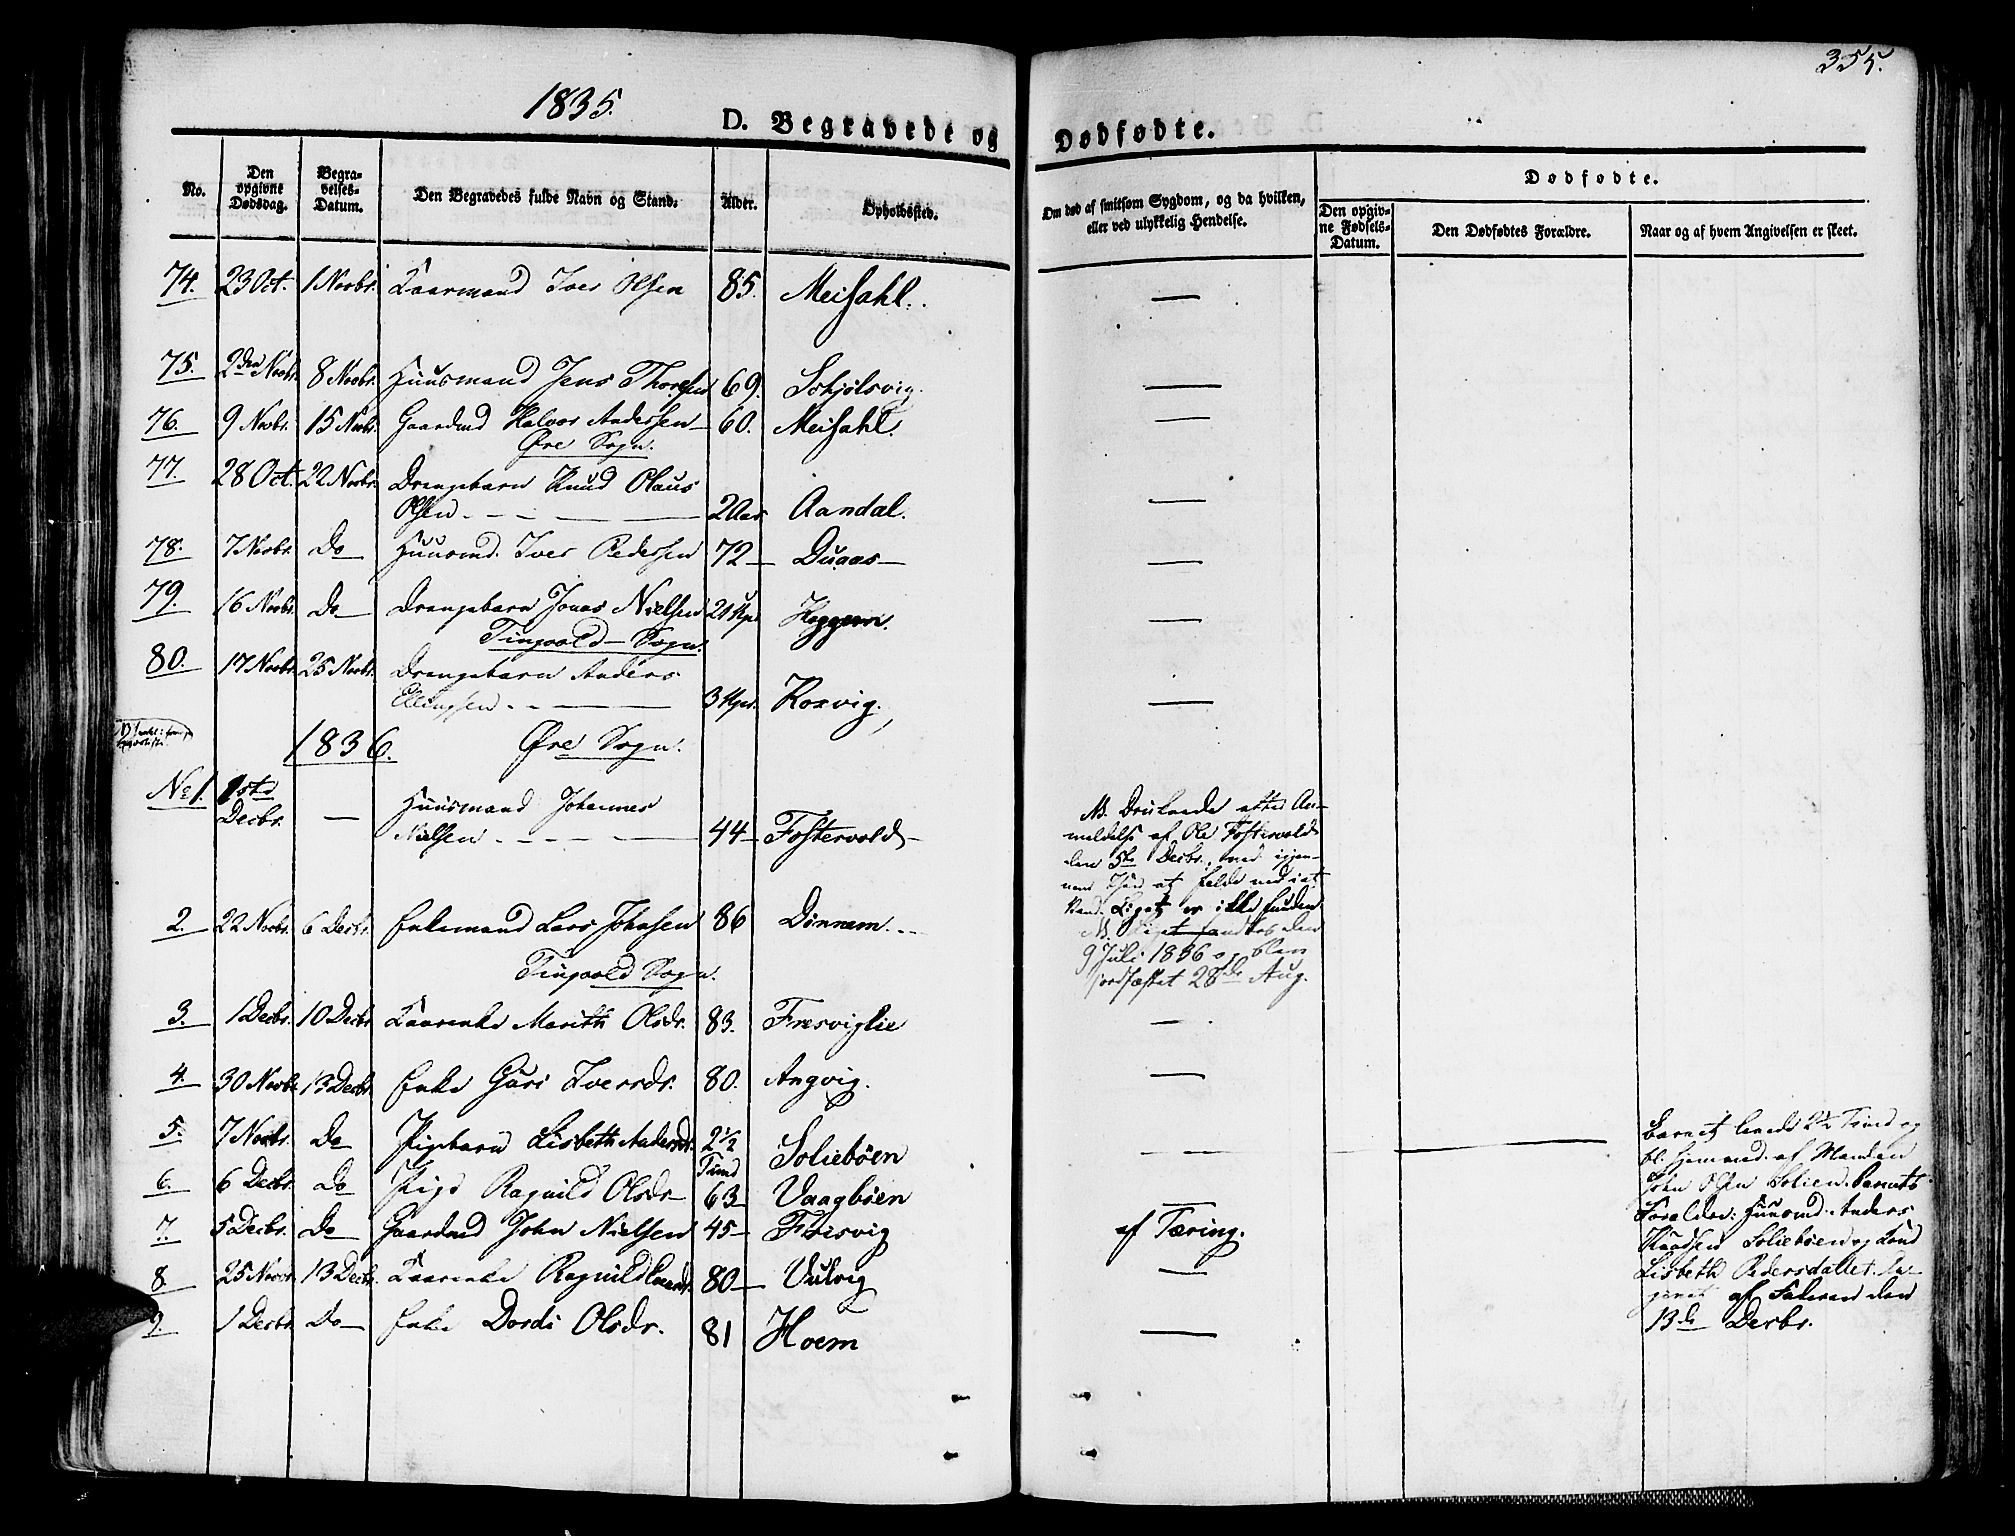 355.
1835.
D. Begravede og Dødfødte.
No.
Den opgivne Dødsdag.
Begravelses-Datum.
Den Begravedes fulde Navn og Stand.
Alder.
Opholdssted.
Om død af smitsom Sygdom, og da hvilken, eller ved ulykkelig Hendelse.
Dødfødte.
Den opgivne Fødsels-Datum.
Den Dødfødtes Forældre.
Naar og af hvem Angivelsen er skeet.
74. 23 Oct. 1 Novbr. Kaarmand Iver Olsen 85. Meisahl. —
75. 2den Novbr. 8 Novbr. Huusmand Jens Thoresen 69. Schjølsvig. —
76. 9 Novbr. 15 Novbr. Gaardmd Halvor Andersen 60. Meisahl. —
Øre Sogn.
77. 28 Oct. 22 Novbr. Drengebarn Knud Olaus
Olsen 2 Aar Aandal. —
78. 7 Novbr. Do Huusmd. Iver Pedersen 72 — Duaas —
79. 16 Novbr. Do Drengebarn Jonas Nielsen 21 Uger Heggem. —
Tingvold Sogn.
80. 17 Novbr. 25 Novbr. Drengebarn Anders
Ellingsen 3 Uger. Korvig. —
1836. Øre Sogn.
No 1. 1ste
Decbr. — Huusmand Johannes
Nielsen 44 — Fostervold —
NB. Druknede efter An-
meldelse af Ole Fostervold
den 5te Decbr. ved igjen-
nem Isen at falde ned i et
Vand. Liget er ikke funden
NB. Liget fandtes den
9 Juli 1836 og blev
jordfæstet 28de Aug.
2. 22 Novbr. 6 Decbr. Enkemand Lars Johnsen 86 Dønnem.
Tingvold Sogn.
3. 1 Decbr. 10 Decbr. Kaarenke Marith Olsdr. 83. Fresviglie —
4. 30 Novbr. 13 Decbr. Enke Guri Iversdr. 80. Angvig. —
5. 7 Novbr. Do Pigebarn Lisbeth Andersdr. 2½
Timd Soliebøen —
Barnet levede 2½ Time og
bl. hjemmed. af Manden
John Olsen Solien. Barnets
Forældre: Huusmd. Anders
Knudsen Soliebøen og Kond
Lisbeth Pedersdatter. An-
givet af Faderen den
13de Decbr.
6. 6 Decbr. Do Pige Ragnild Olsdr 63 Vaagbøen —
7. 5 Decbr. Do Gaardmd John Nielsen 45 — Freisvig af Tæring.
8. 25 Novbr. 13 Decbr. Kaarenke Ragnild 80 — Vulvig —
9. 1 Decbr. Do Enke Dordi Olsdr. 81 Hoem —